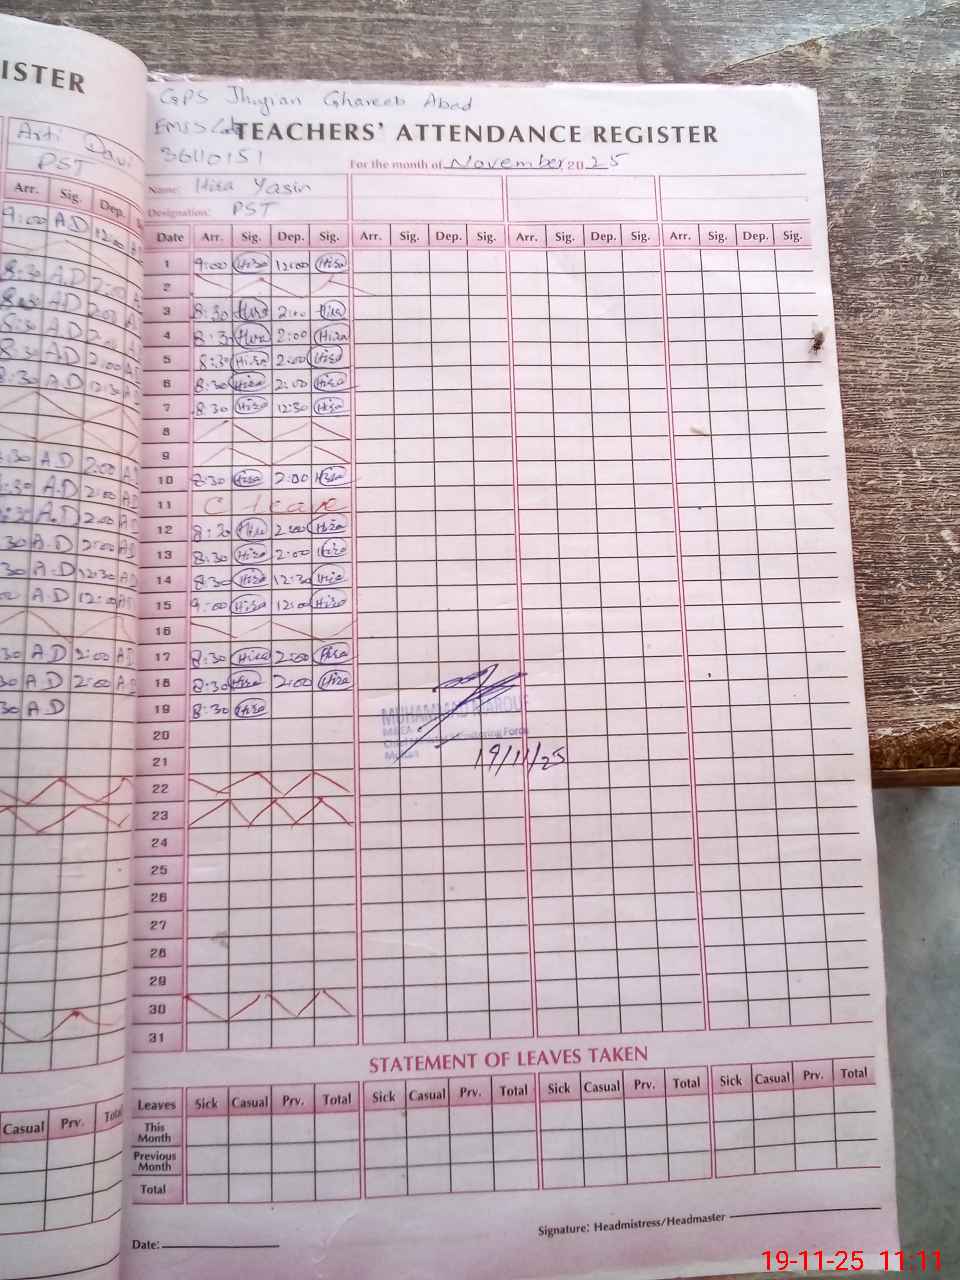 ISTER
Arti Davi
PST
Arr. Sig. Dep.
9:00 A.D 12:00
8:30 A.D 2:00
A.D 2:00
8:30 A.D 2:00
8:30 A.D 2:00
8:30 A.D 12:30
:30 A.D 2:00
:30 A.D 2:00
:30 A.D 2:00
30 A.D 2:00
30 A.D 12:30
A.D 12:00
30 A.D 2:00
30 A.D 2:00
30 A.D
Casual Prv. Total
GPS Jhugian Ghareeb Abad
EMIS Code
36110151
TEACHERS' ATTENDANCE REGISTER
For the month of November 2025
Name: Hira Yasin
Designation: PST
Date Arr. Sig. Dep. Sig. Arr. Sig. Dep. Sig. Arr. Sig. Dep. Sig. Arr. Sig. Dep. Sig.
1 9:00 Hira 12:00 Hira
2
3 8:30 Hira 2:00 Hira
4 8:30 Hira 2:00 Hira
5 8:30 Hira 2:00 Hira
6 8:30 Hira 2:00 Hira
7 8:30 Hira 12:30 Hira
8
9
10 8:30 Hira 2:00 Hira
11 C leave
12 8:30 Hira 2:00 Hira
13 8:30 Hira 2:00 Hira
14 8:30 Hira 12:30 Hira
15 9:00 Hira 12:00 Hira
16
17 8:30 Hira 2:00 Hira
18 8:30 Hira 2:00 Hira
19 8:30 Hira
20
21
22
23
24
25
26
27
28
29
30
31
MUHAMMAD
MEA
Monitoring Force
19/11/25
STATEMENT OF LEAVES TAKEN
Leaves Sick Casual Prv. Total Sick Casual Prv. Total Sick Casual Prv. Total Sick Casual Prv. Total
This Month
Previous Month
Total
Date:
Signature: Headmistress/Headmaster
19-11-25 11:11